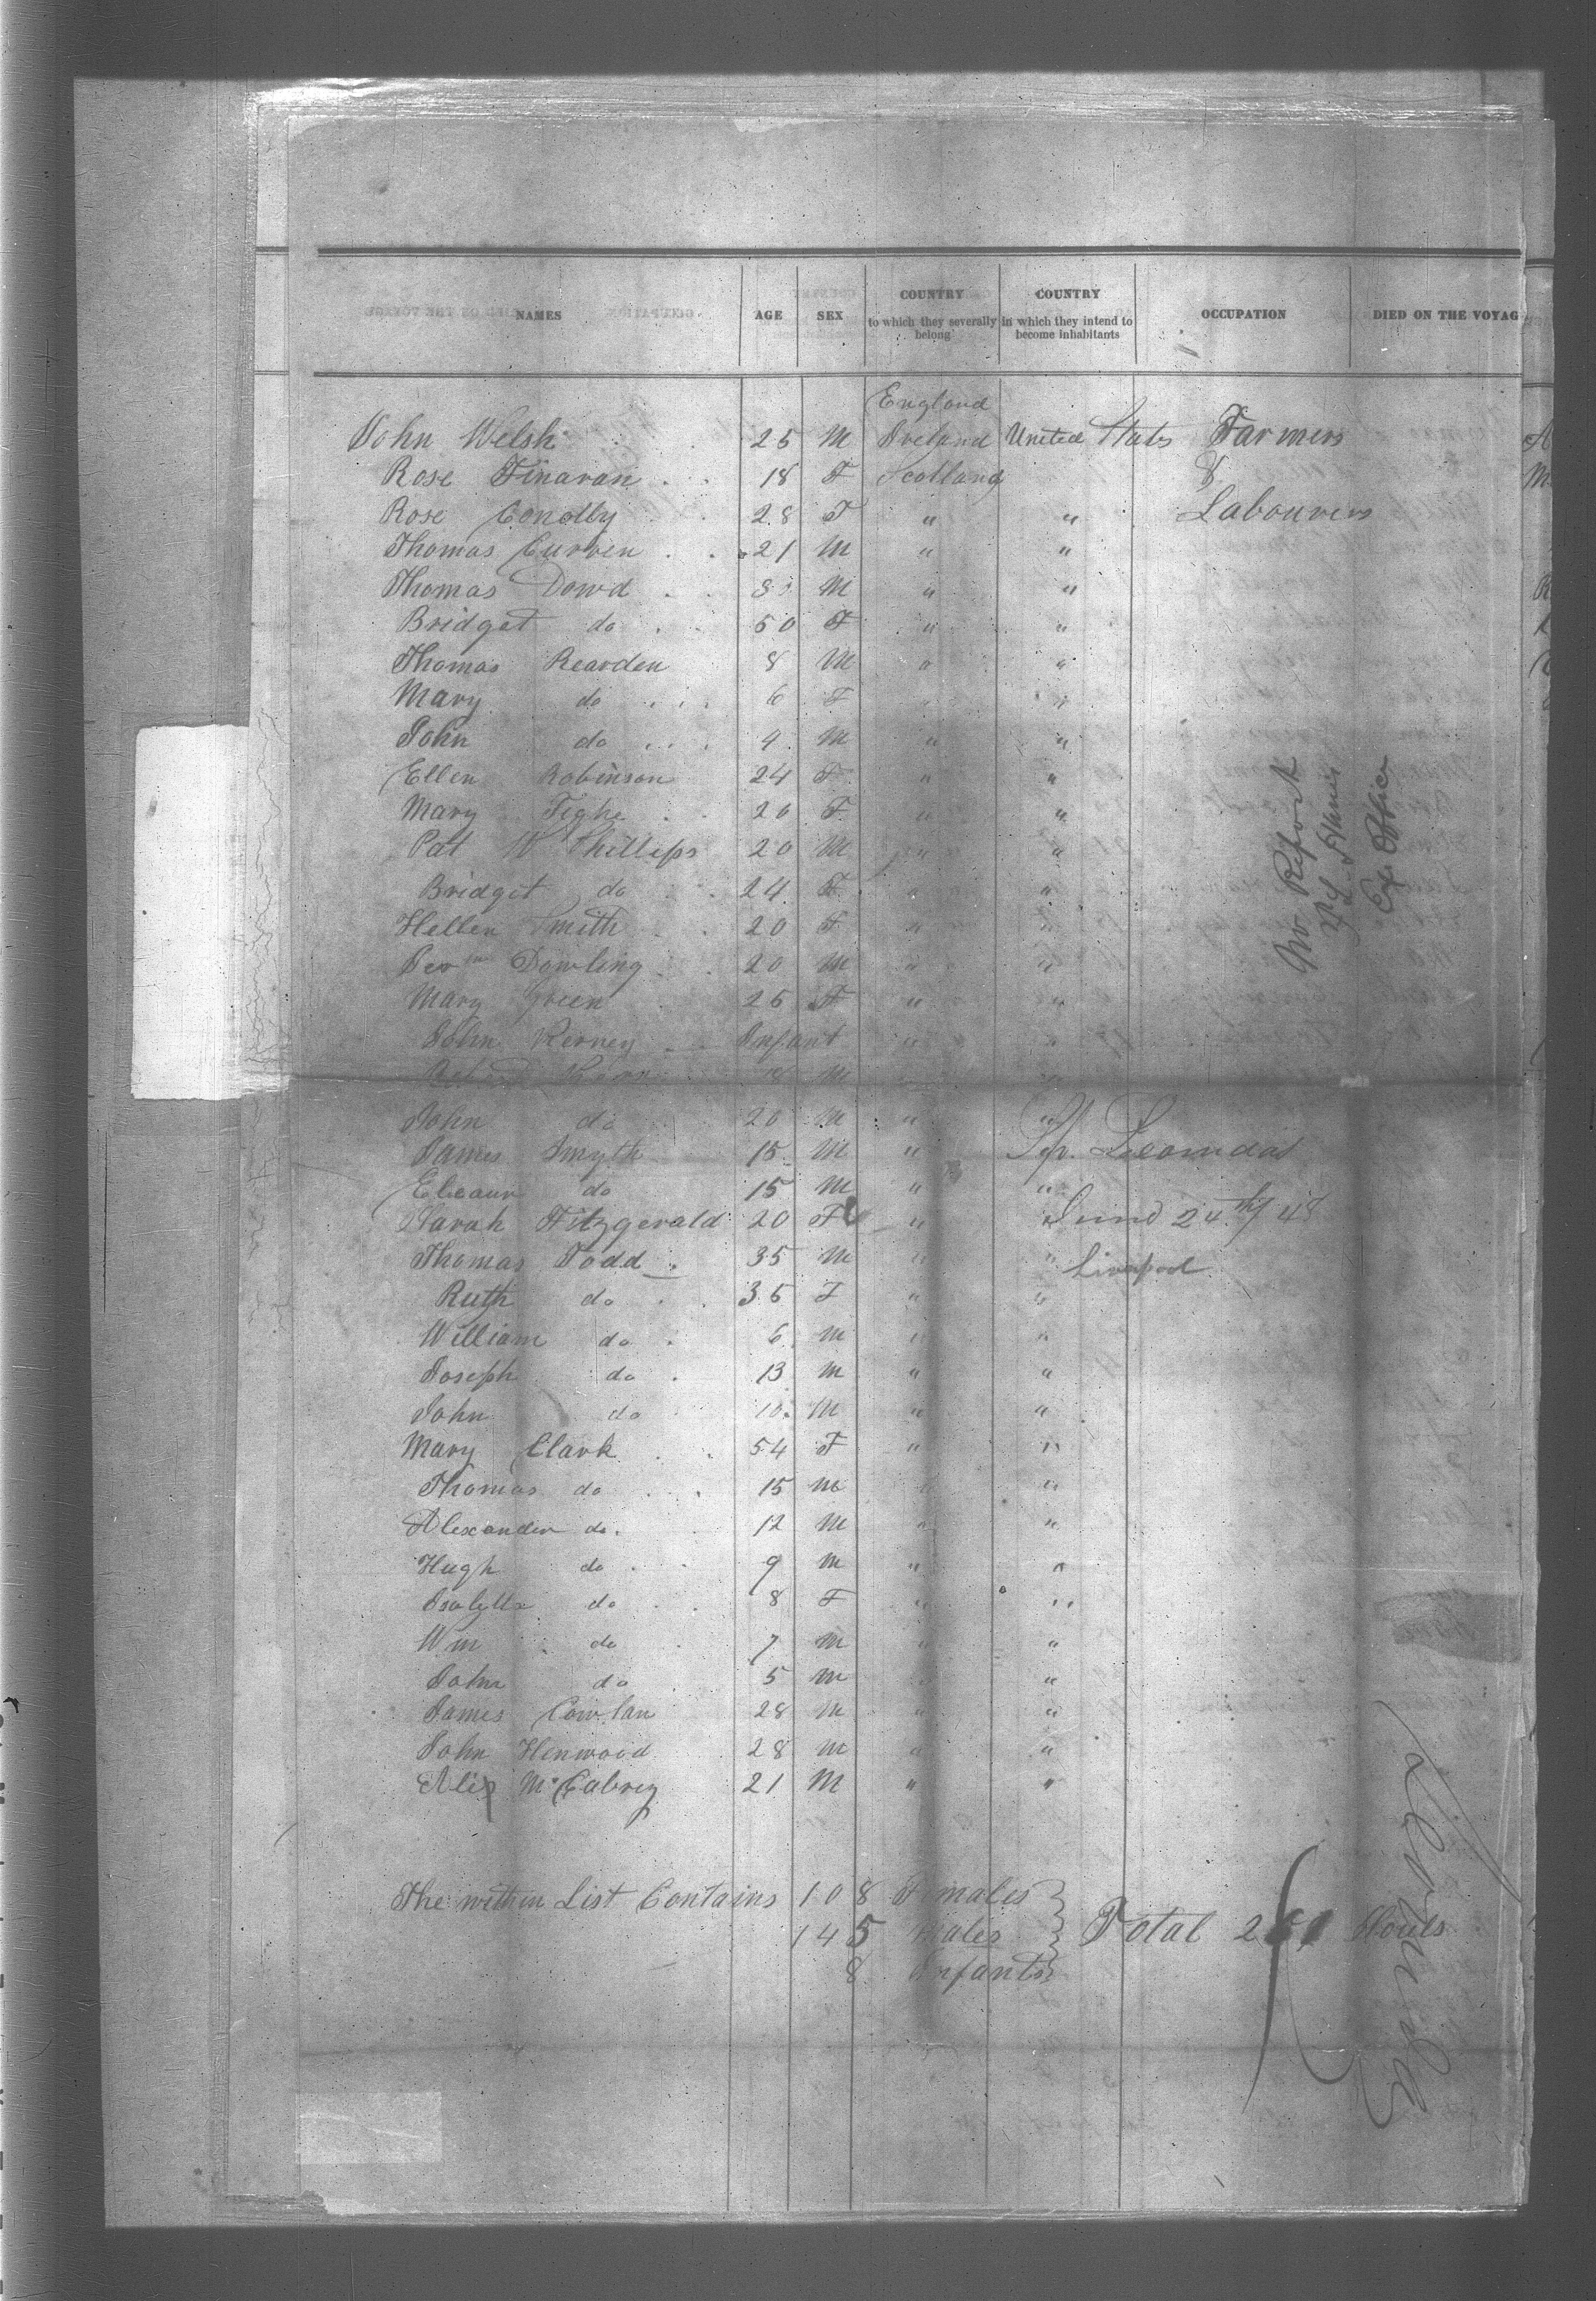 NAMES AGE SEX COUNTRY to which they severally belong COUNTRY in which they intend to become inhabitants OCCUPATION DIED ON THE VOYAG
England
John Welsh 25 M Ireland United Stats Farmers
Rose Finaran 18 F Scotland &
Rose Conolly 28 F " " Labourers
Thomas Curren 21 M " "
Thomas Dowd M " "
Bridget do 50 F " "
Thomas Rearden 8 M " "
Mary do 6 F " "
John do 4 M " "
Ellen Robinson 24 F " "
Mary Tighe 20 F " "
Pat W Phillips 20 M " "
Bridget do 24 F " "
Hellen Smith 20 F " "
Dowling 20 M " "
Mary Green 25 F " "
John Kerney Infant " "
M
John do 20 M " "
James Smyth 15 M "
do 15 M " "
Sarah Fitzgerald 20 F "
Thomas Todd 35 M " "
Ruth do 35 F " "
William do 6 M " "
Joseph do 13 M " "
John do 10 M " "
Mary Clark 54 F " "
Thomas do 15 M " "
Alexander do. 12 M " "
Hugh do 9 M " "
Isabella do 8 F " "
Wm do 7 M " "
John do 5 M " "
James Cowlan 28 M " "
John Henwood 28 M " "
Alex 21 M " "
No Report
Office
24th/48
Liverpool
The within List Contains 108 Females
145 Males Total 261 Souls
8 Infants